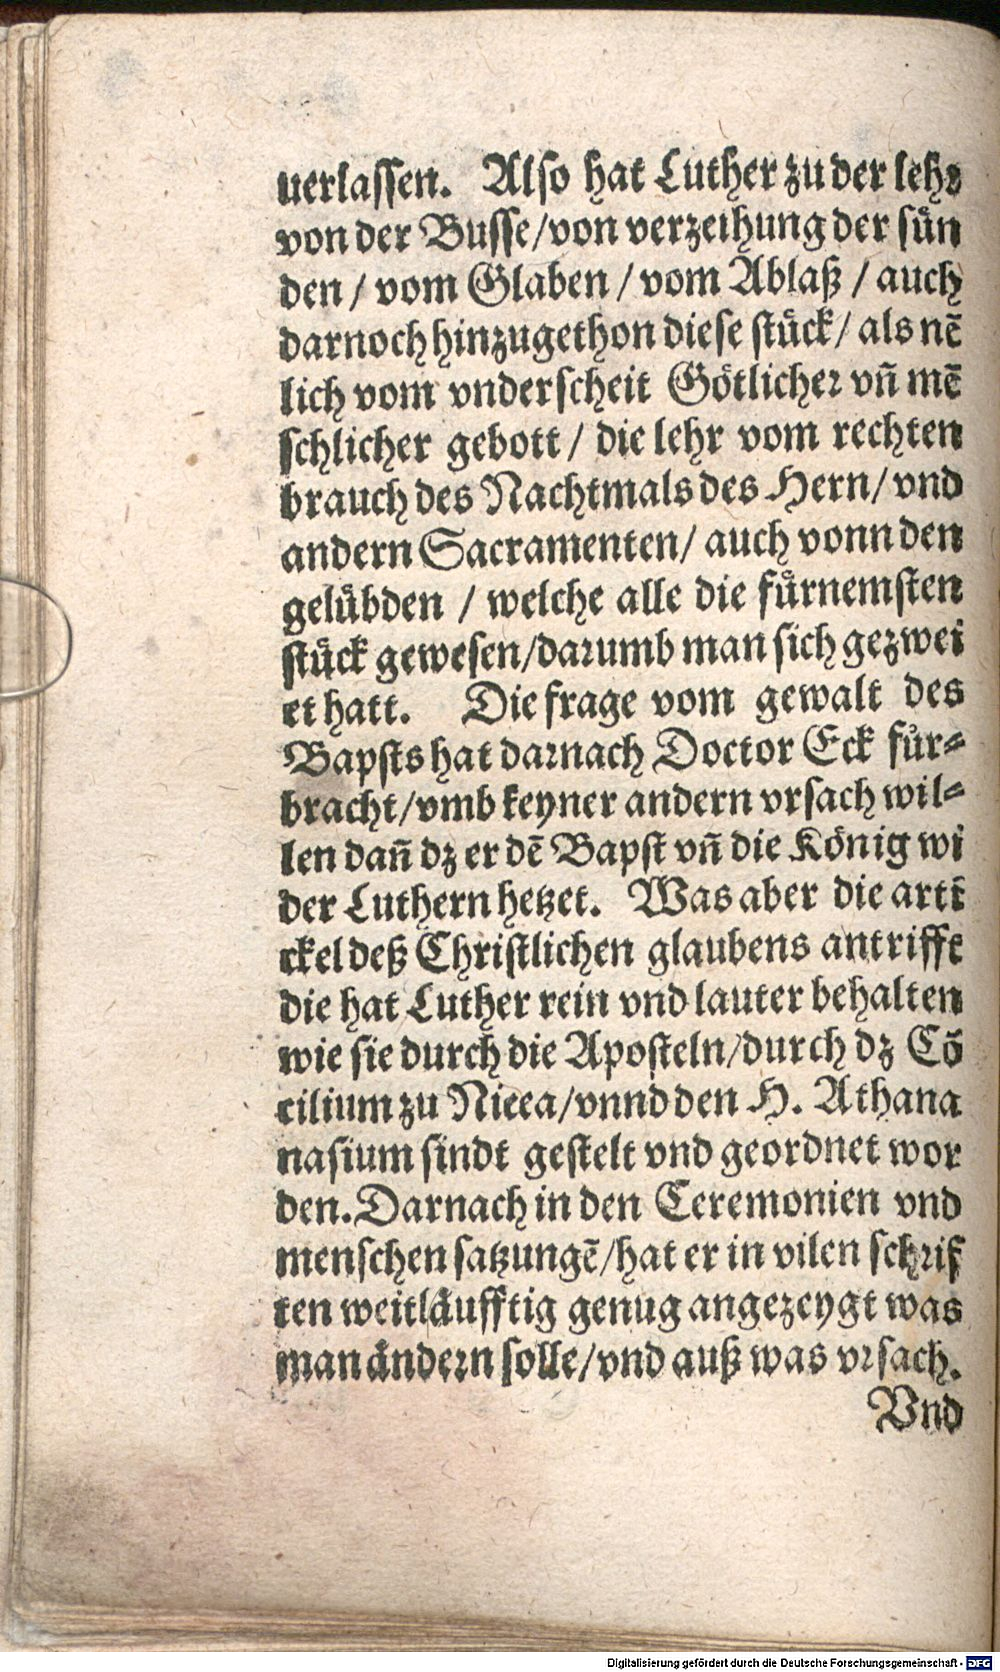 uerlassen. Also hat Luther zu der lehr
von der Busse/von verzeihung der sün
den / vom Glaben / vom Ablaß / auch
darnoch hinzugethon diese stück/ als nē
lich vom vnderscheit Götlicher vñ mē
schlicher gebott/ die lehr vom rechten
brauch des Nachtmals des Hern/ vnd
andern Sacramenten/ auch vonn den
gelübden / welche alle die fürnemsten
stück gewesen/darumb man sich gezwei
et hatt. Die frage vom gewalt des
Bapsts hat darnach Doctor Eck für⸗
bracht/vmb keyner andern vrsach wil⸗
len dañ dz er dē Bapst vñ die König wi
der Luthern hetzet. Was aber die arti
ckel deß Christlichen glaubens antrifft
die hat Luther rein vnd lauter behalten
wie sie durch die Aposteln/durch dz Cō
cilium zu Nicea/vnnd den H. Athana
nasium sindt gestelt vnd geordnet wor
den. Darnach in den Ceremonien vnd
menschen satzungē/hat er in vilen schrif
ten weitläufftig genug angezeygt was
man ändern solle/vnd auß was vrsach.
Vnd
Digitalisierung gefördert durch die Deutsche Forschungsgemeinschaft - DFG